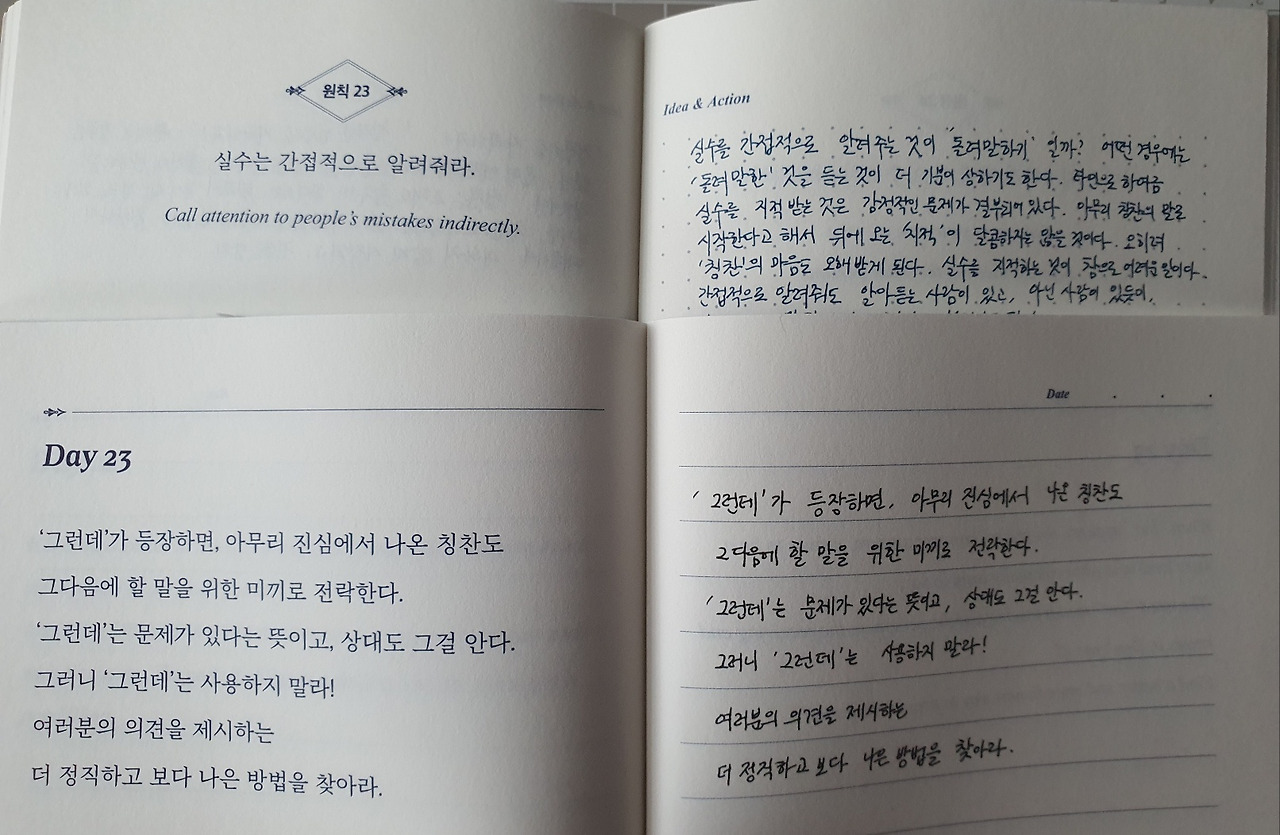 원칙 23
실수는 간접적으로 알려줘라.
Call attention to people's mistakes indirectly.
Idea & Action
실수를 간접적으로 알려주는 것이 '돌려말하기' 일까? 어떤 경우에는
'돌려 말한' 것을 듣는 것이 더 기분이 상하기도 한다. 타인으로 하여금
실수를 지적 받는 것은 감정적인 문제가 결부되어 있다. 아무리 칭찬의 말로
시작한다고 해서 뒤에 오는 '지적'이 달콤하지는 않을 것이다. 오히려
'칭찬'의 마음도 오해받게 된다. 실수를 지적하는 것이 참으로 어려운 일이다.
간접적으로 알려줘도 알아듣는 사람이 있고, 아닌 사람이 있듯이,
Day 23
'그런데'가 등장하면, 아무리 진심에서 나온 칭찬도
그다음에 할 말을 위한 미끼로 전락한다.
'그런데'는 문제가 있다는 뜻이고, 상대도 그걸 안다.
그러니 '그런데'는 사용하지 말라!
여러분의 의견을 제시하는
더 정직하고 보다 나은 방법을 찾아라.
Date . . .
'그런데'가 등장하면, 아무리 진심에서 나온 칭찬도
그다음에 할 말을 위한 미끼로 전락한다.
'그런데'는 문제가 있다는 뜻이고, 상대도 그걸 안다.
그러니 '그런데'는 사용하지 말라!
여러분의 의견을 제시하는
더 정직하고 보다 나은 방법을 찾아라.